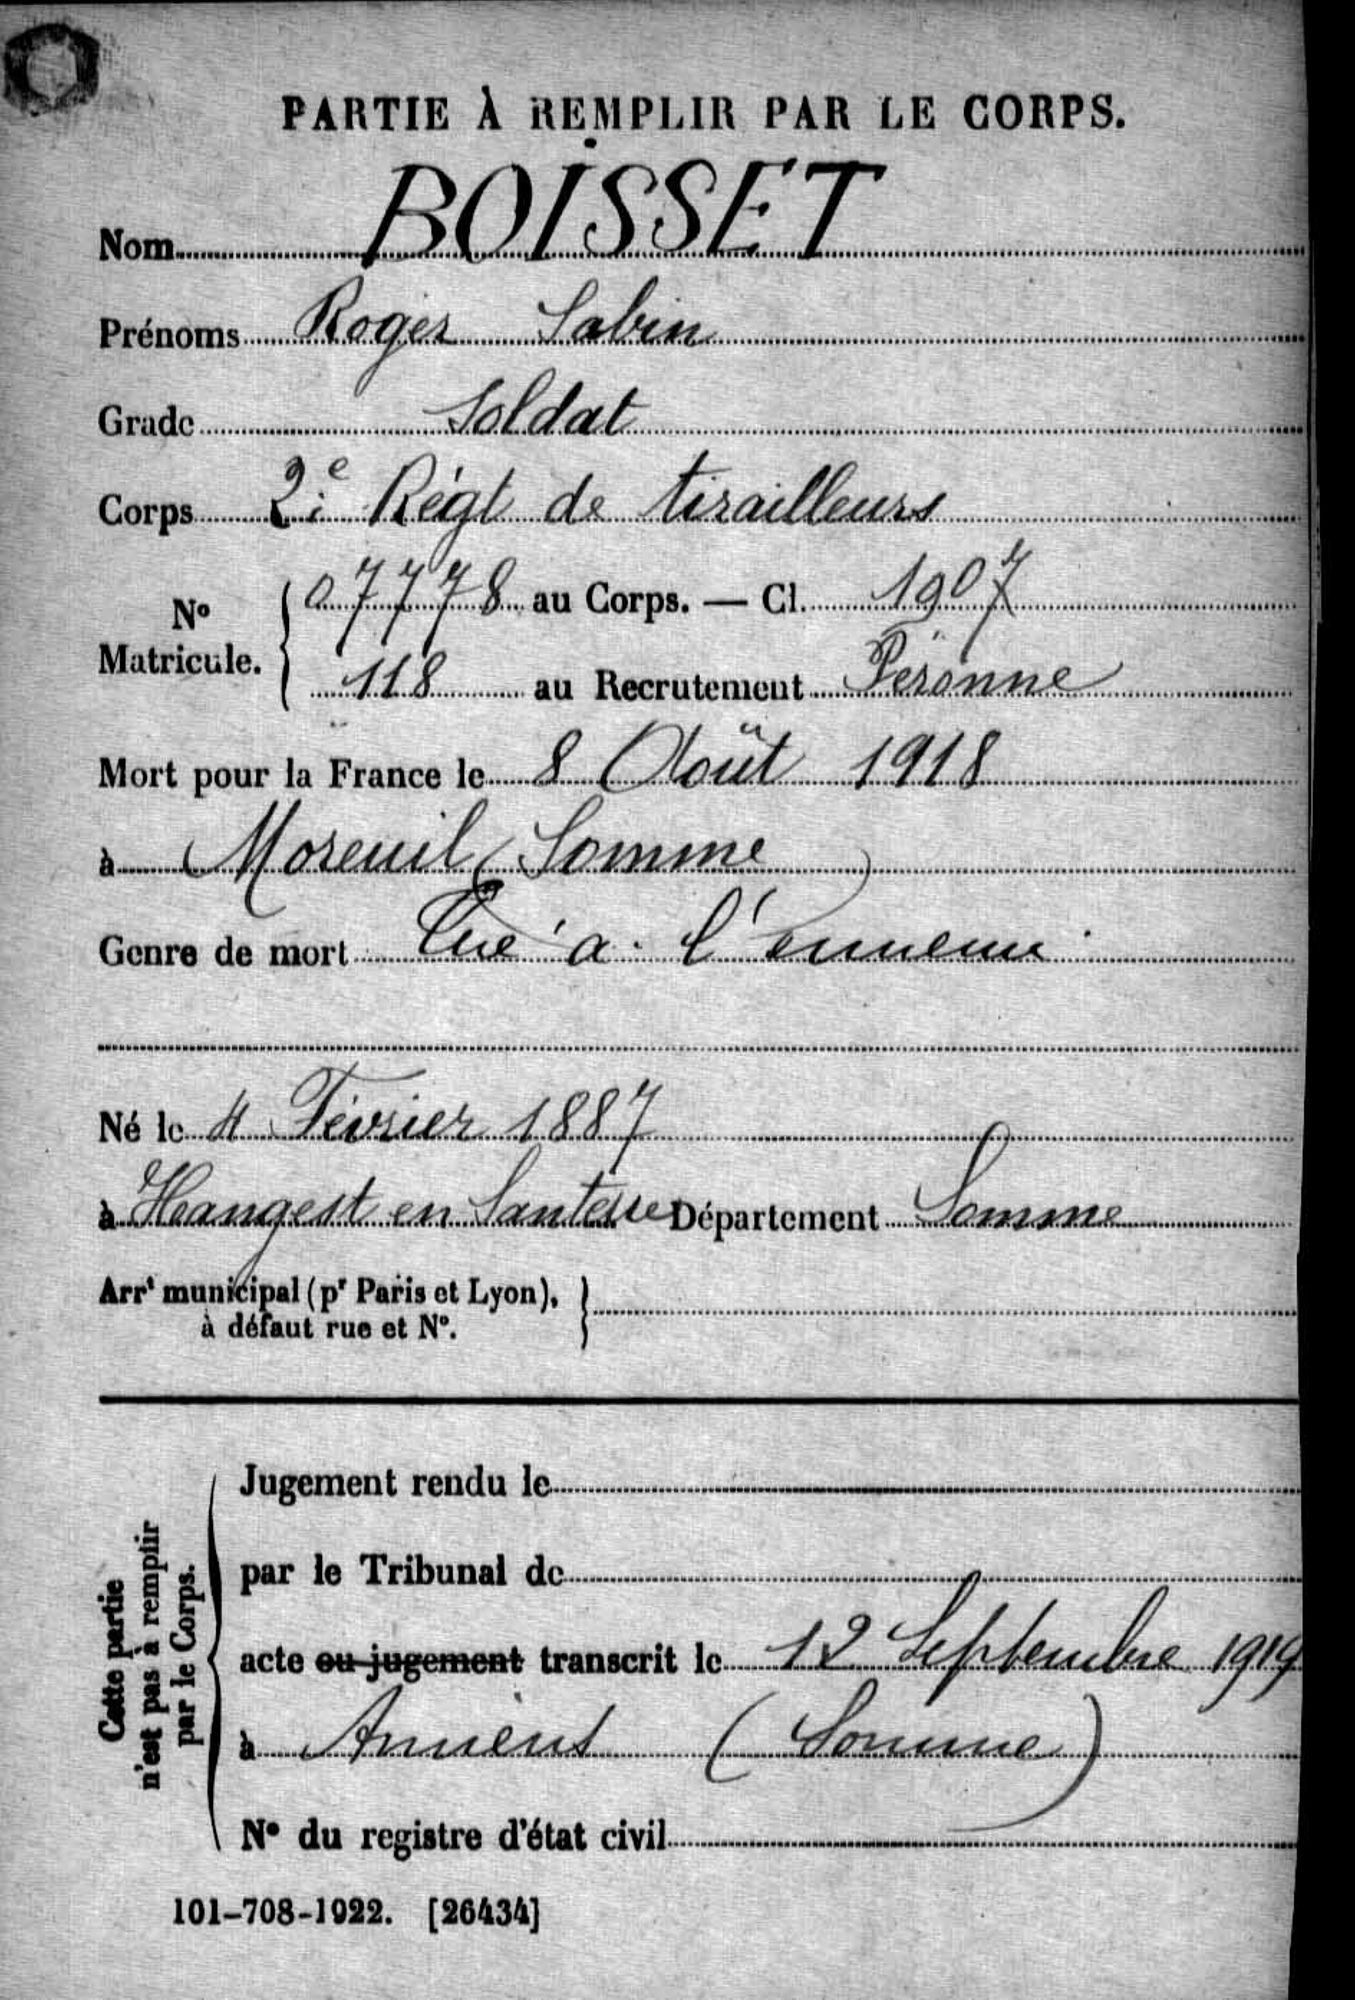 PARTIE À REMPLIR PAR LE CORPS.
Nom BOISSET
Prénoms Roger Sabin
Grade Soldat
Corps 2e Régt de tirailleurs
No Matricule. 07778 au Corps. — Cl. 1907
118 au Recrutement Péronne
Mort pour la France le 8 Août 1918
à Moreuil (Somme)
Genre de mort Tué à l'ennemi
Né le 4 Février 1887
à Hangest en Santerre Département Somme
Arrt municipal (pr Paris et Lyon),
à défaut rue et No.
Cette partie
n'est pas à remplir
par le Corps.
Jugement rendu le
par le Tribunal de
acte ou jugement transcrit le 12 Septembre 1919
à Amiens (Somme)
No du registre d'état civil
101-708-1922. [26434]